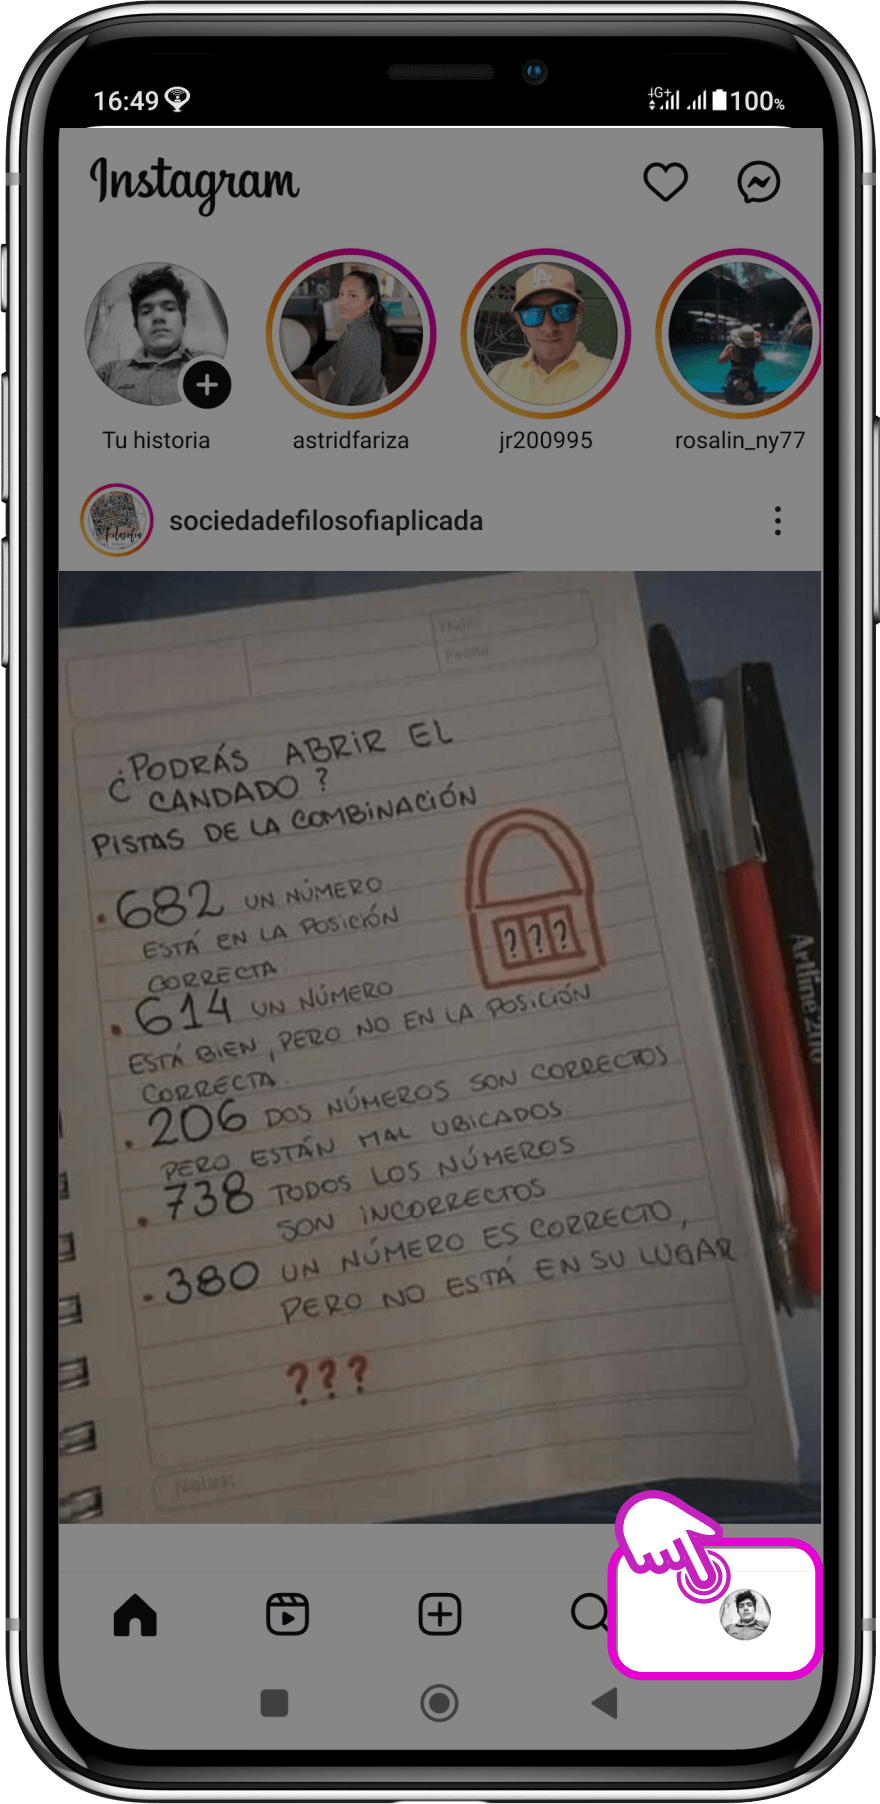 16:49
4G+ 100%
Instagram
Tu historia
astridfariza
jr200995
rosalin_ny77
sociedadefilosofiaplicada
¿PODRÁS ABRIR EL
CANDADO?
PISTAS DE LA COMBINACIÓN
• 682 UN NÚMERO
ESTÁ EN LA POSICIÓN
CORRECTA
???
• 614 UN NÚMERO
ESTÁ BIEN, PERO NO EN LA POSICIÓN
CORRECTA.
• 206 DOS NÚMEROS SON CORRECTOS
PERO ESTÁN MAL UBICADOS.
• 738 TODOS LOS NÚMEROS
SON INCORRECTOS
• 380 UN NÚMERO ES CORRECTO,
PERO NO ESTÁ EN SU LUGAR
???
Notas:
Fecha
Artline 200